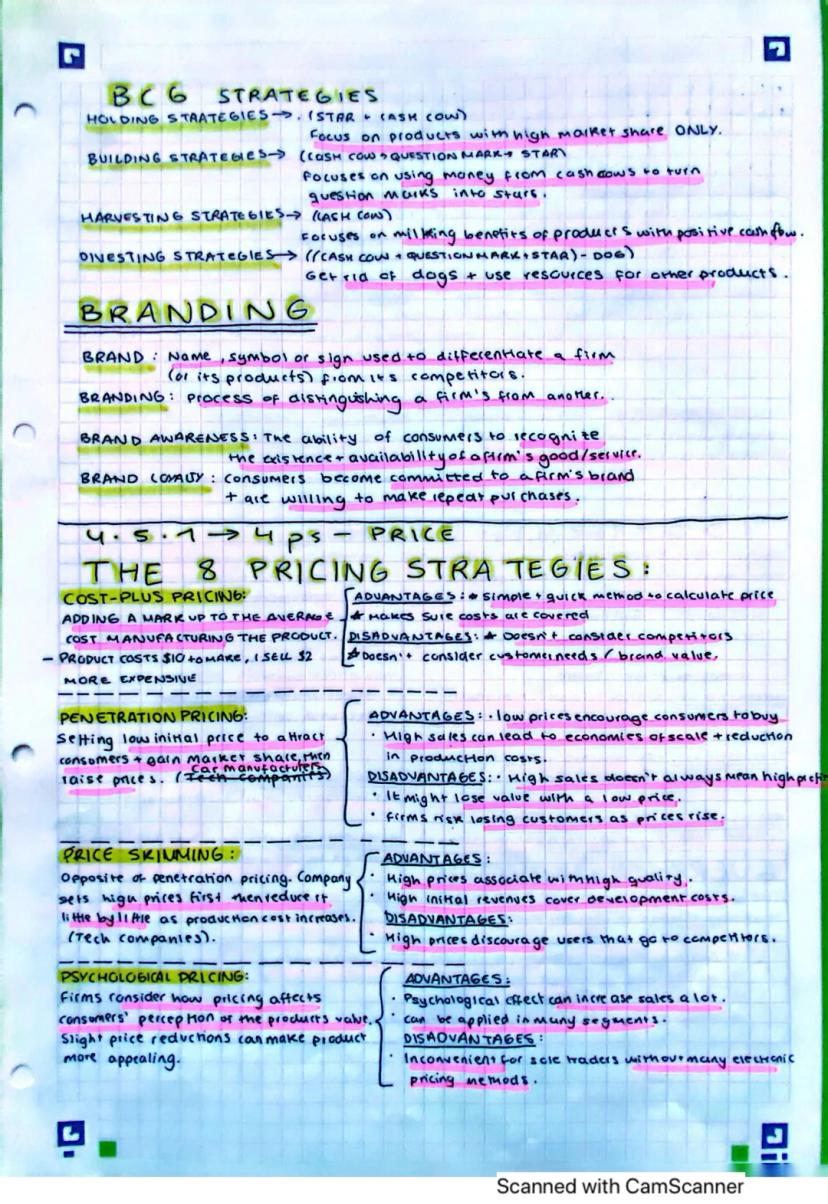 BCG STRATEGIES
HOLDING STRATEGIES → . (STAR + CASH COW)
Focus on products with high market share ONLY.
BUILDING STRATEGIES → (CASH COW → QUESTION MARK → STAR)
Focuses on using money from cash cows to turn
question marks into stars.
HARVESTING STRATEGIES → (CASH COW)
Focuses on milking benefits of products with positive cashflow.
DIVESTING STRATEGIES → ((CASH COW + QUESTION MARK + STAR) - DOG)
Get rid of dogs + use resources for other products.
BRANDING
BRAND: Name, symbol or sign used to differentiate a firm
(or its products) from its competitors.
BRANDING: Process of distinguishing a firm's from another.
BRAND AWARENESS: The ability of consumers to recognize
the existence + availability of a firm's good/service.
BRAND LOYALTY: consumers become committed to a firm's brand
+ are willing to make repeat purchases.
4.5.1 → 4 ps - PRICE
THE 8 PRICING STRATEGIES:
COST-PLUS PRICING:
ADDING A MARK UP TO THE AVERAGE
COST MANUFACTURING THE PRODUCT.
- PRODUCT COSTS $10 TO MAKE, I SELL $2
MORE EXPENSIVE
ADVANTAGES: * Simple + quick method to calculate price
* Makes sure costs are covered
DISADVANTAGES: * Doesn't consider competitors
* Doesn't consider customer needs / brand value.
PENETRATION PRICING:
Setting low initial price to attract
consumers + gain market share, then
car manufacturers
raise prices. (Tech companies)
ADVANTAGES: · low prices encourage consumers to buy
· High sales can lead to economies of scale + reduction
in production costs.
DISADVANTAGES: · High sales doesn't always mean high profit
· It might lose value with a low price.
· Firms risk losing customers as prices rise.
PRICE SKIMMING:
Opposite of penetration pricing. Company
sets high prices first then reduce it
little by little as production cost increases.
(Tech companies).
ADVANTAGES:
· High prices associate with high quality.
· High initial revenues cover development costs.
DISADVANTAGES:
· High prices discourage users that go to competitors.
PSYCHOLOGICAL PRICING:
Firms consider how pricing affects
consumers' perception of the products value.
Slight price reductions can make product
more appealing.
ADVANTAGES:
· Psychological effect can increase sales a lot.
· can be applied in many segments.
DISADVANTAGES:
· Inconvenient for sole traders without many electronic
pricing methods.
Scanned with CamScanner